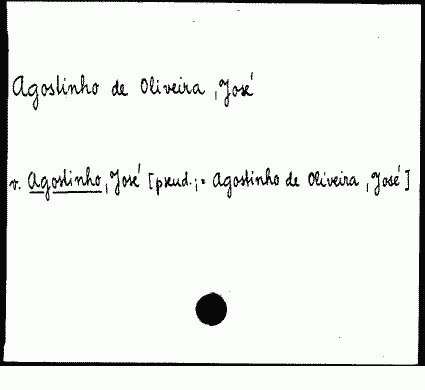 Agostinho de Oliveira, José
v. Agostinho, José [pseud.; = Agostinho de Oliveira, José]